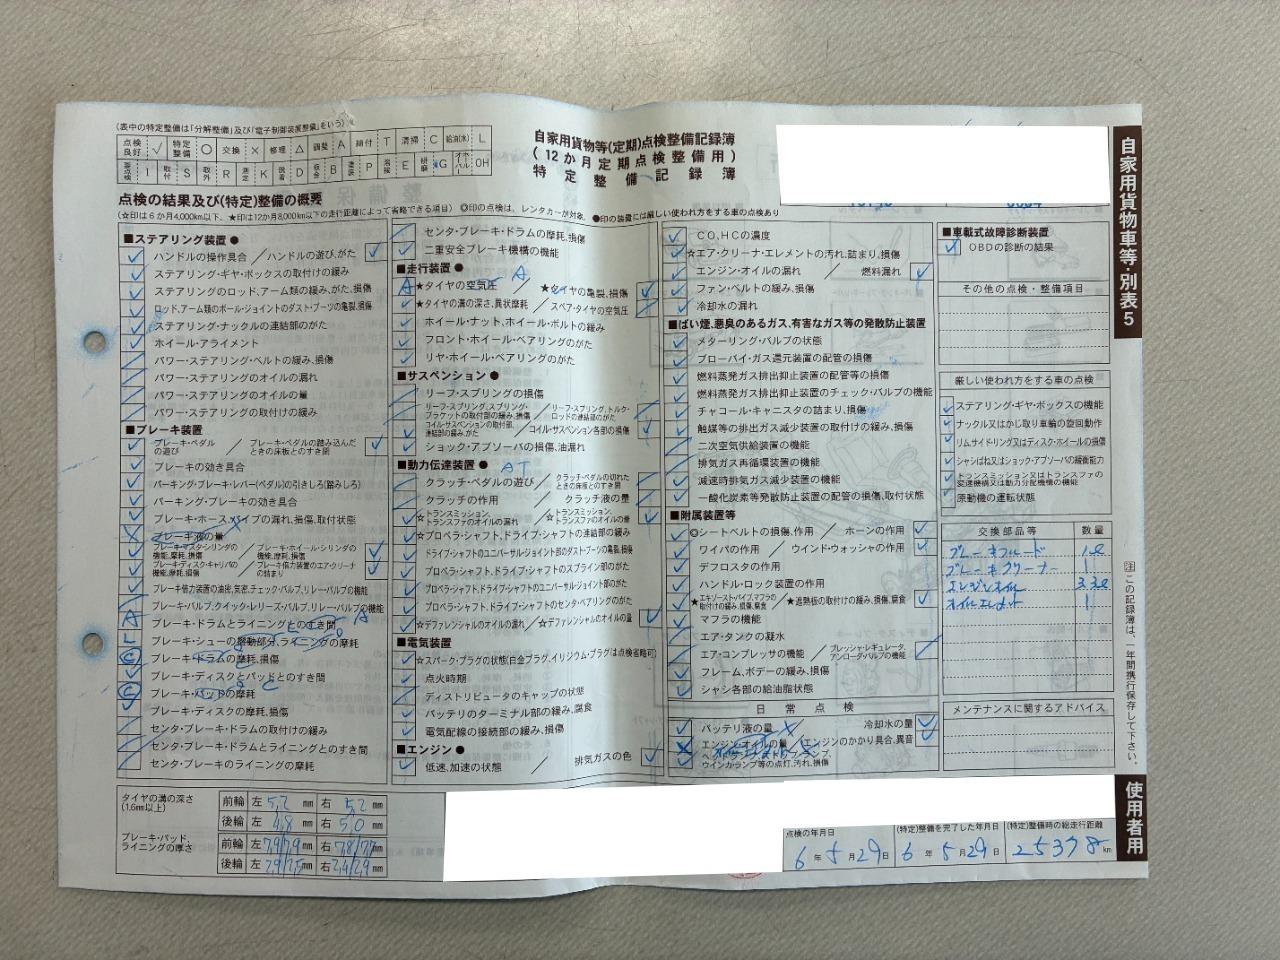 (表中の特定整備は「分解整備」及び「電子制御装置整備」をいう)
点検良好 ✓ 特定整備 ○ 交換 × 修理 △ 調整 A 締付 T 清掃 C 給油(水) L
要点検 I 取付 S 取外 R 測定 K 脱着 D 板金 B 塗装 P 溶接 E 研磨 G オーバーホール OH
自家用貨物等(定期)点検整備記録簿
(12か月定期点検整備用)
特定整備記録簿
自家用貨物車等・別表5
点検の結果及び(特定)整備の概要
(☆印は6か月4,000km以下、★印は12か月8,000km以下の走行距離によって省略できる項目) ◎印の点検は、レンタカーが対象 ●印の装置には厳しい使われ方をする車の点検あり
■ステアリング装置 ●
✓ ハンドルの操作具合 / ハンドルの遊び、がた ✓
ステアリング・ギヤ・ボックスの取付けの緩み
ステアリングのロッド、アーム類の緩み、がた、損傷
ロッド、アーム類のボール・ジョイントのダスト・ブーツの亀裂、損傷
ステアリング・ナックルの連結部のがた
ホイール・アライメント
パワー・ステアリング・ベルトの緩み、損傷
パワー・ステアリングのオイルの漏れ
パワー・ステアリングのオイルの量
パワー・ステアリングの取付けの緩み
■ブレーキ装置
ブレーキ・ペダルの遊び / ブレーキ・ペダルの踏み込んだときの床板とのすき間 ✓
ブレーキの効き具合
パーキング・ブレーキ・レバー(ペダル)の引きしろ(踏みしろ)
パーキング・ブレーキの効き具合
ブレーキ・ホース、パイプの漏れ、損傷、取付状態
ブレーキ液の量
ブレーキ・マスタ・シリンダの機能、摩耗、損傷 / ブレーキ・ホイール・シリンダの機能、摩耗、損傷 ✓
ブレーキ・ディスク・キャリパの機能、摩耗、損傷 / ブレーキ倍力装置のエア・クリーナの詰まり ✓
ブレーキ倍力装置の油密、気密、チェック・バルブ、リレー・バルブの機能
ブレーキ・バルブ、クイック・レリーズ・バルブ、リレー・バルブの機能
A ブレーキ・ドラムとライニングとのすき間 A
L ブレーキ・シューの摺動部分、ライニングの摩耗
ブレーキ・ドラムの摩耗、損傷
ブレーキ・ディスクとパッドとのすき間
ブレーキ・パッドの摩耗
ブレーキ・ディスクの摩耗、損傷
センタ・ブレーキ・ドラムの取付けの緩み
センタ・ブレーキ・ドラムとライニングとのすき間
センタ・ブレーキのライニングの摩耗
センタ・ブレーキ・ドラムの摩耗、損傷
二重安全ブレーキ機構の機能
■走行装置 ●
A ★タイヤの空気圧 A / ★タイヤの亀裂、損傷 ✓
★タイヤの溝の深さ、異状摩耗 / スペア・タイヤの空気圧
ホイール・ナット、ホイール・ボルトの緩み
フロント・ホイール・ベアリングのがた
リヤ・ホイール・ベアリングのがた
■サスペンション ●
リーフ・スプリングの損傷
リーフ・スプリング、スプリング・ブラケットの取付部の緩み、損傷 / リーフ・スプリング、トルク・ロッドの連結部のがた
コイル・サスペンションの取付部、連結部の緩み、がた / コイル・サスペンション各部の損傷 ✓
ショック・アブソーバの損傷、油漏れ
■動力伝達装置 ● AT
クラッチ・ペダルの遊び / クラッチ・ペダルの切れたときの床板とのすき間
クラッチの作用 / クラッチ液の量
☆トランスミッション、トランスファのオイルの漏れ / ☆トランスミッション、トランスファのオイルの量 ✓
☆プロペラ・シャフト、ドライブ・シャフトの連結部の緩み
ドライブ・シャフトのユニバーサル・ジョイント部のダスト・ブーツの亀裂、損傷
プロペラ・シャフト、ドライブ・シャフトのスプライン部のがた
プロペラ・シャフト、ドライブ・シャフトのユニバーサル・ジョイント部のがた
プロペラ・シャフト、ドライブ・シャフトのセンタ・ベアリングのがた
☆デファレンシャルのオイルの漏れ / ☆デファレンシャルのオイルの量 ✓
■電気装置
☆スパーク・プラグの状態(白金プラグ、イリジウム・プラグは点検省略可)
点火時期
ディストリビュータのキャップの状態
バッテリのターミナル部の緩み、腐食
電気配線の接続部の緩み、損傷
■エンジン ●
低速、加速の状態 / 排気ガスの色 ✓
CO、HCの濃度
☆エア・クリーナ・エレメントの汚れ、詰まり、損傷
エンジン・オイルの漏れ / 燃料漏れ ✓
ファン・ベルトの緩み、損傷
冷却水の漏れ
■ばい煙、悪臭のあるガス、有害なガス等の発散防止装置
メターリング・バルブの状態
ブローバイ・ガス還元装置の配管の損傷
燃料蒸発ガス排出抑止装置の配管等の損傷
燃料蒸発ガス排出抑止装置のチェック・バルブの機能
チャコール・キャニスタの詰まり、損傷
触媒等の排出ガス減少装置の取付けの緩み、損傷
二次空気供給装置の機能
排気ガス再循環装置の機能
減速時排気ガス減少装置の機能
一酸化炭素等発散防止装置の配管の損傷、取付状態
■附属装置等
◎シートベルトの損傷、作用 / ホーンの作用 ✓
ワイパの作用 / ウインド・ウォッシャの作用 ✓
デフロスタの作用
ハンドル・ロック装置の作用
★エキゾースト・パイプ、マフラの取付けの緩み、損傷、腐食 / ★遮熱板の取付けの緩み、損傷、腐食 ✓
マフラの機能
エア・タンクの凝水
エア・コンプレッサの機能 / プレッシャ・レギュレータ、アンローダ・バルブの機能
フレーム、ボデーの緩み、損傷
シャシ各部の給油脂状態
日常点検
バッテリ液の量 / 冷却水の量 ✓
エンジン・オイルの量 / エンジンのかかり具合、異音 ✓
ヘッドランプ、ストップランプ、ウインカランプ等の点灯、汚れ、損傷
■車載式故障診断装置
✓ OBDの診断の結果
その他の点検・整備項目
厳しい使われ方をする車の点検
✓ ステアリング・ギヤ・ボックスの機能
✓ ナックル又はかじ取り車輪の旋回動作
✓ リムサイドリング又はディスク・ホイールの損傷
✓ シャシばね又はショック・アブソーバの緩衝能力
✓ トランスミッション又はトランスファの変速機構又は動力分配機構の機能
✓ 原動機の運転状態
交換部品等 数量
ブレーキフルード 1ℓ
ブレーキクリーナー 1
エンジンオイル 3.3ℓ
オイルエレメント 1
メンテナンスに関するアドバイス
注 この記録簿は、一年間携行保存して下さい。
使用者用
タイヤの溝の深さ(1.6mm以上)
前輪 左 5,2 mm 右 5,2 mm
後輪 左 4,8 mm 右 5,0 mm
ブレーキ・パッド、ライニングの厚さ
前輪 左 7.9/7.9 mm 右 7.8/7.7 mm
後輪 左 2.9/2.5 mm 右 2.4/2.9 mm
点検の年月日 6年5月29日
(特定)整備を完了した年月日 6年5月29日
(特定)整備時の総走行距離 25378 km